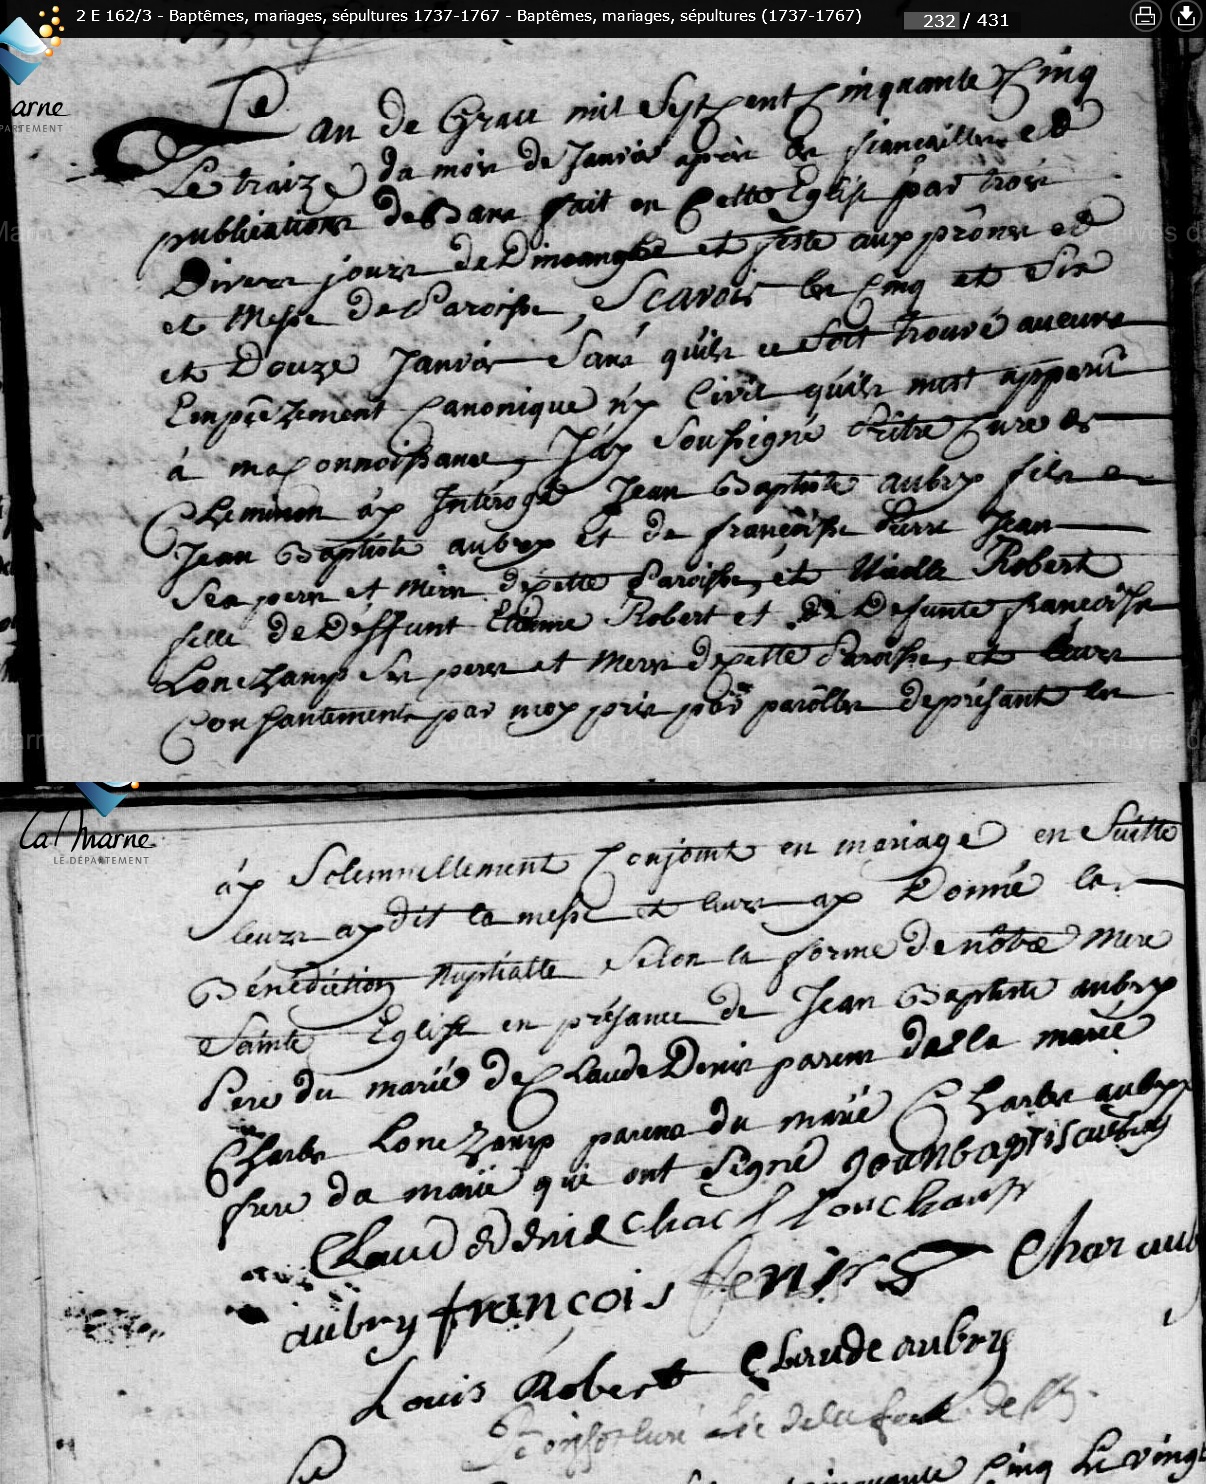 2 E 162/3 - Baptêmes, mariages, sépultures 1737-1767 - Baptêmes, mariages, sépultures (1737-1767) 232 / 431
arne
PARTEMENT
Le an de Grace mil Sept Cent Cinquante Cinq
Le traize du mois de Janvier après les fiancailles et
publications de Bans fait en Cette Eglise par trois
Divers jours de Dimanghe et feste aux prônes et
et Messe de Paroisse, Scavoir les Cinq et Six
et Douze Janvier Sans quils ce Soit trouvé aucuns
Empêchement Canonique ny Civil quils mest apparû
à ma Connoissance, Jay Soussigné Prêtre Curé de
Cheminon ay Interogé Jean Baptiste aubry fils de
Jean Baptiste aubry et de françoise Pierre Jean
Ses peres et Mères de Cette Paroisse, et Robert
fille de Deffunt Etienne Robert et de Defunte françoise
Lonchamp Ses peres et Meres de Cette Paroisse, et leurs
Consantements par moy pris par parolles de présants les
La Marne
LE DÉPARTEMENT
ay Solemnellement Conjoint en mariage en Suitte
leurs ay dit la messe et leurs ay Donné la
Bénédiction Nuptialle Selon la forme de nôtre Mere
Sainte Eglise en présance de Jean Baptiste aubry
Pere du marié de Claude Denis parens de la marié
Charles Lonchamp parens du marié Charles aubry
frere du marié qui ont Signé Jean baptis aubry
Claude denis Char Lonchamp
aubry françois Char aub
Louis Robert Claude aubry
Cinq Le vingt